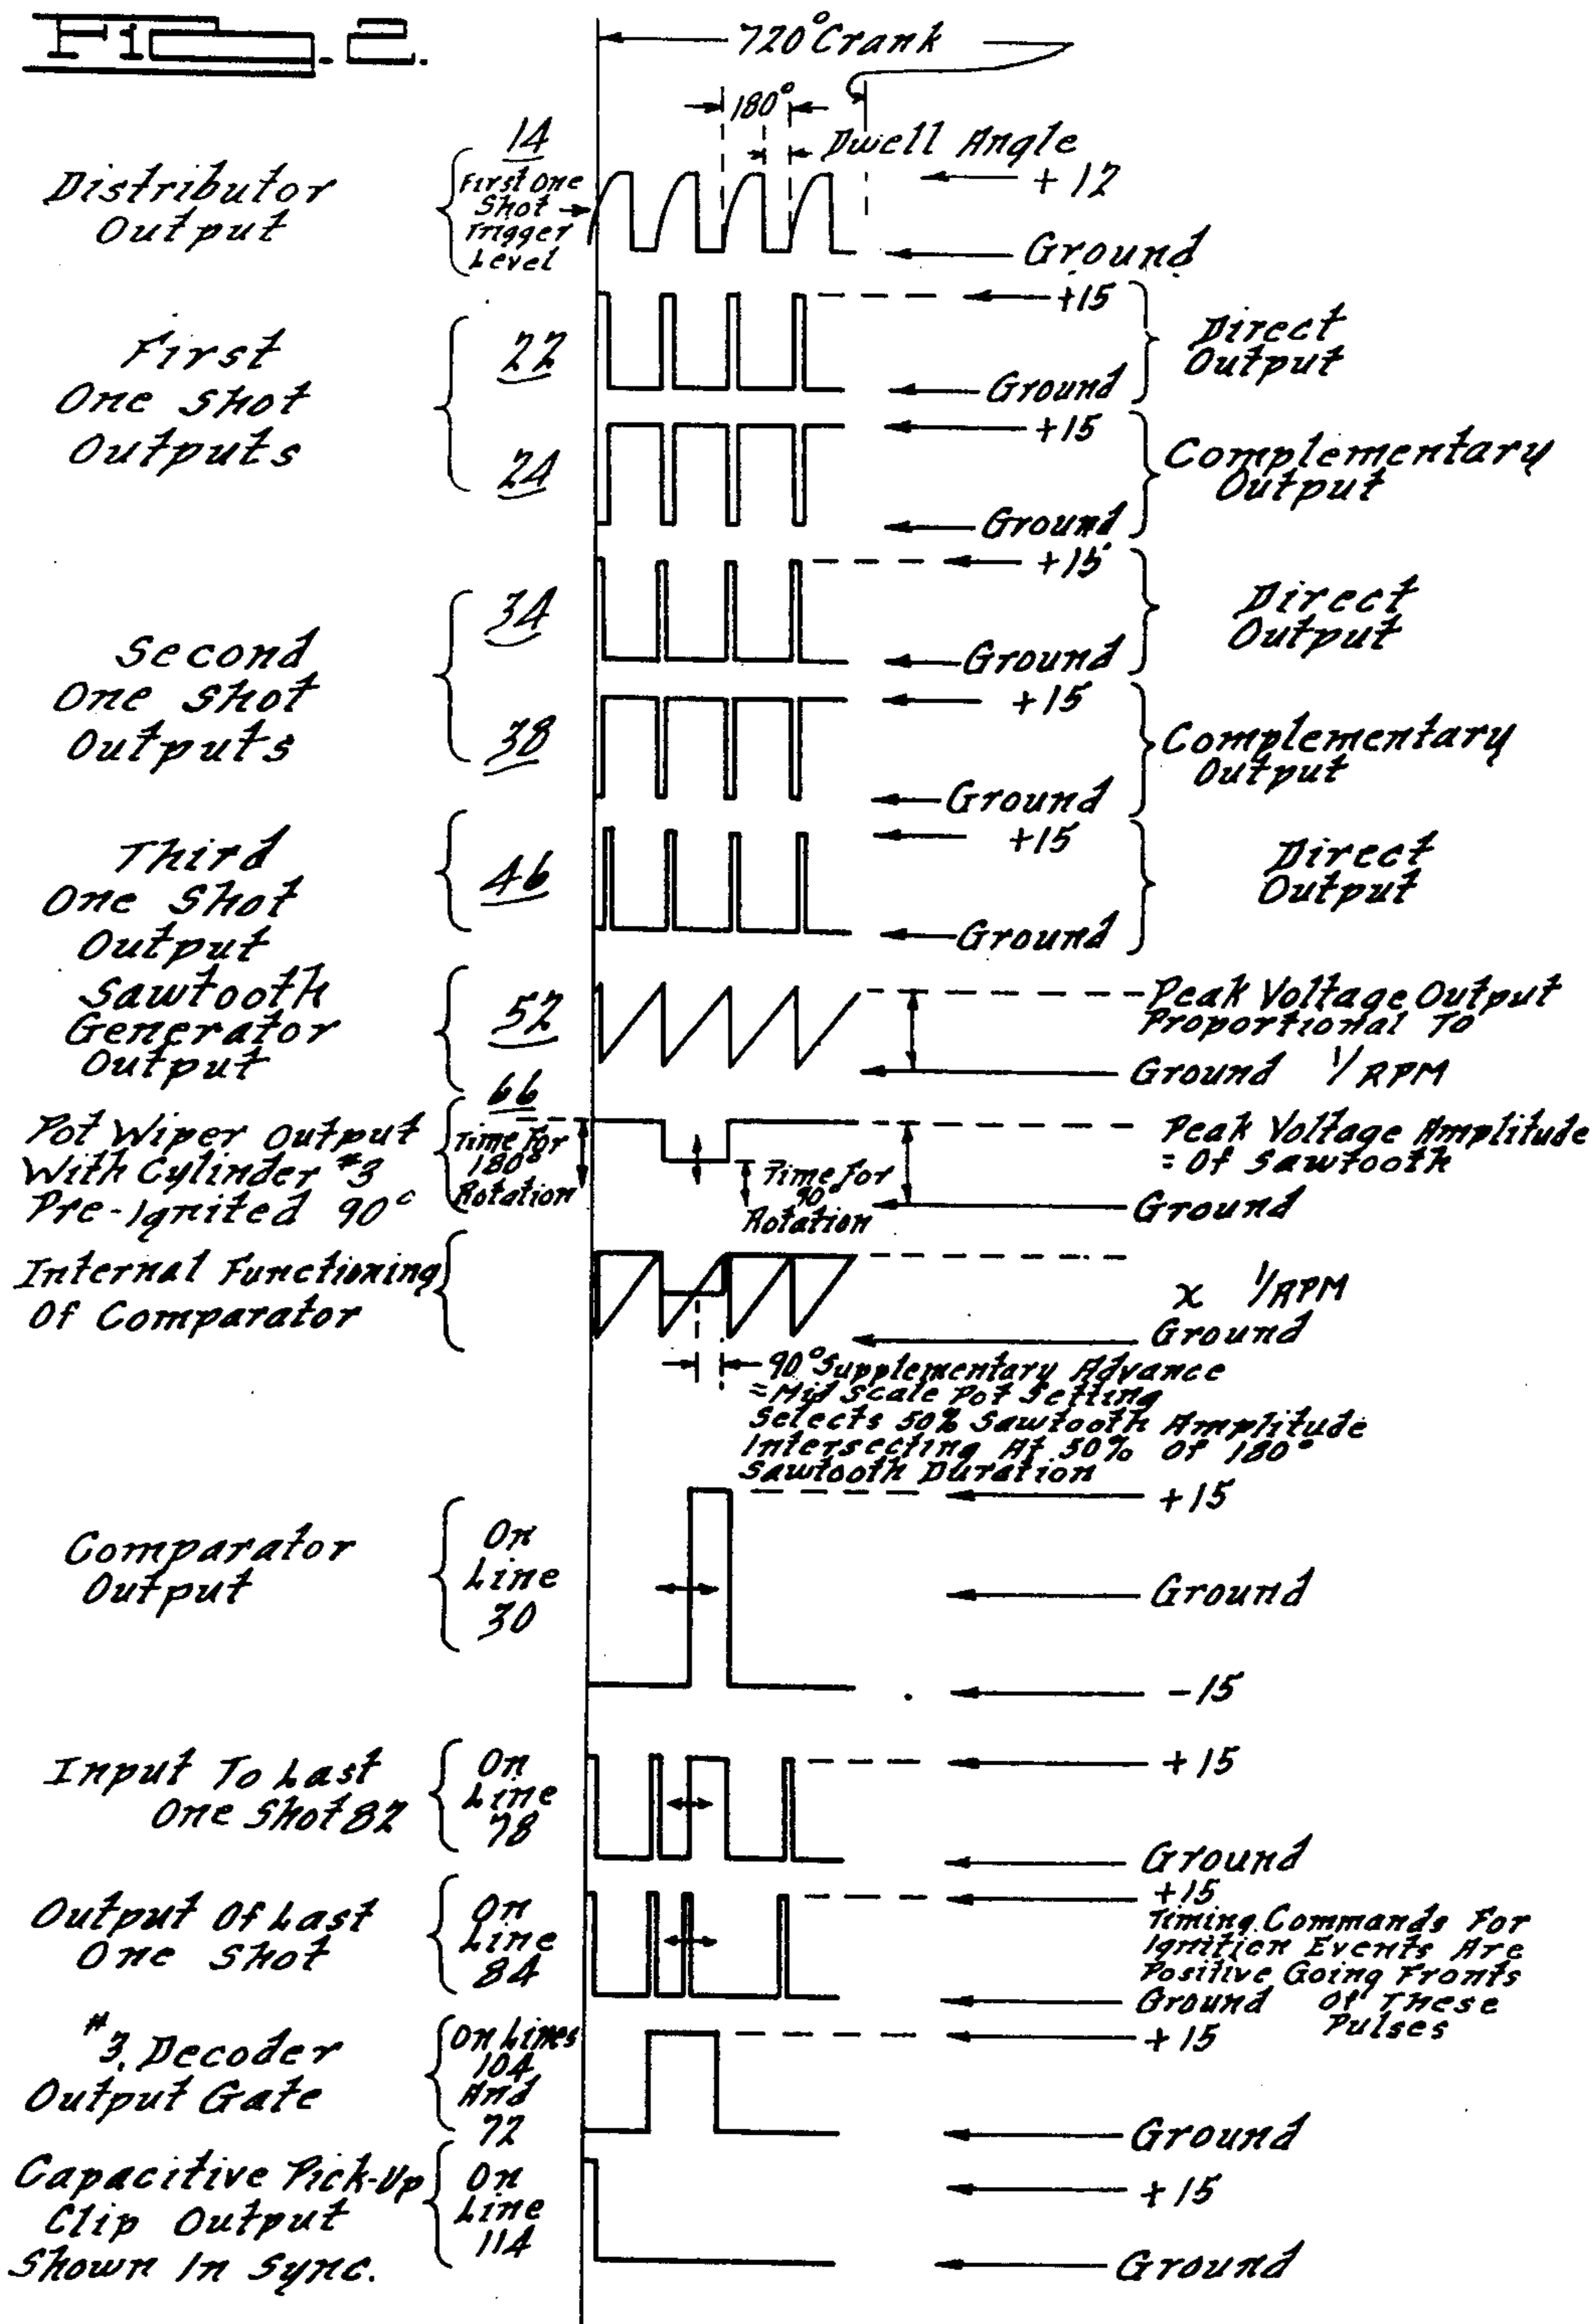 FIG. 2.
720° Crank
180°
Dwell Angle
Distributor
Output
14
First One
Shot
Trigger
Level
+12
Ground
First
One Shot
Outputs
22
+15
Ground
Direct
Output
24
+15
Ground
Complementary
Output
Second
One Shot
Outputs
34
+15
Ground
Direct
Output
38
+15
Ground
Complementary
Output
Third
One Shot
Output
46
+15
Ground
Direct
Output
Sawtooth
Generator
Output
52
Peak Voltage Output
Proportional To
Ground 1/RPM
Pot Wiper Output
With Cylinder #3
Pre-Ignited 90°
66
Time For
180°
Rotation
Time For
90°
Rotation
Peak Voltage Amplitude
= Of Sawtooth
Ground
Internal Functioning
Of Comparator
x 1/RPM
Ground
90° Supplementary Advance
= Mid Scale Pot Setting
Selects 50% Sawtooth Amplitude
Intersecting At 50% Of 180°
Sawtooth Duration
Comparator
Output
On
Line
30
+15
Ground
-15
Input To Last
One Shot 82
On
Line
78
+15
Ground
Output Of Last
One Shot
On
Line
84
+15
Timing Commands For
Ignition Events Are
Positive Going Fronts
Ground Of These
Pulses
#3. Decoder
Output Gate
On Lines
104
And
72
+15
Ground
Capacitive Pick-Up
Clip Output
Shown In Sync.
On
Line
114
+15
Ground